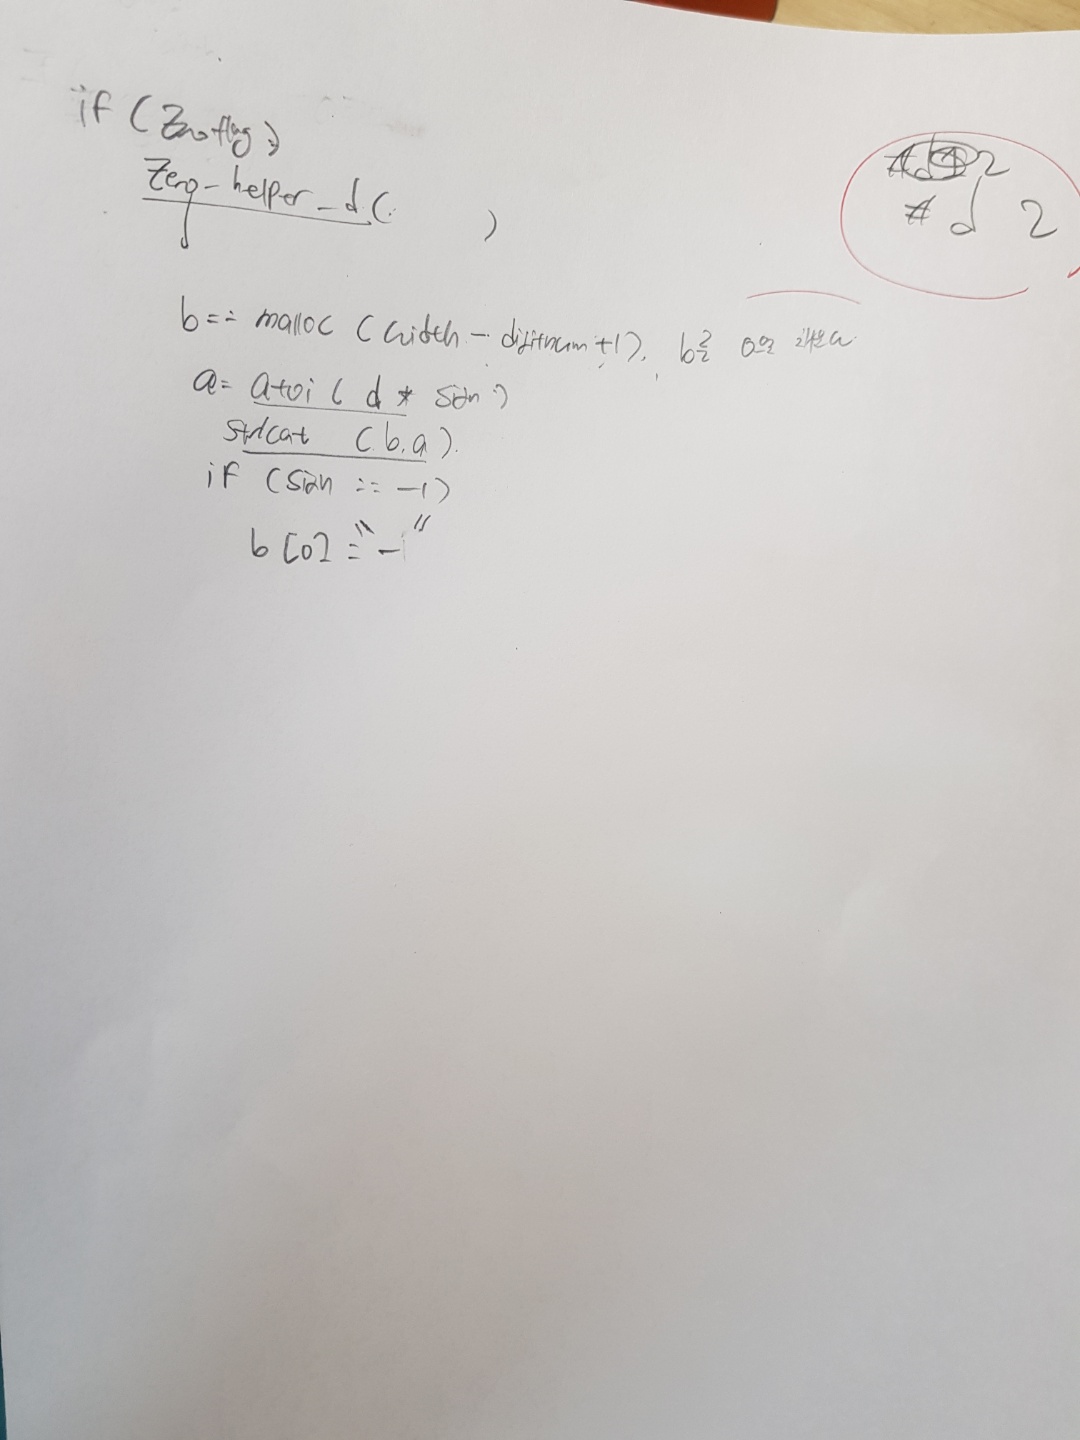 if (Zeroflag)
Zero-helper-d(        )
b = malloc (width - digitnum +1), b를 0으로 채운다
a = atoi ( d * sign )
strlcat (b, a).
if (sign == -1)
b[0] = "-"
# d 2